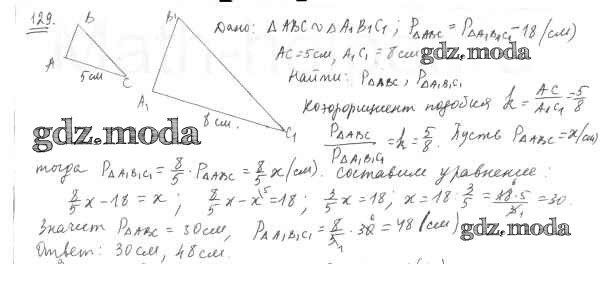 129.
B
A
5 см
C
B₁
A₁
8 см.
C₁
Дано: △ABC ∾ △A₁B₁C₁; P△ABC = P△A₁B₁C₁ - 18 (см)
AC = 5 см, A₁C₁ = 8 см
gdz.moda
Найти: P△ABC, P△A₁B₁C₁
Коэффициент подобия 1/k = AC/A₁C₁ = 5/8
gdz.moda
P△ABC/P△A₁B₁C₁ = 1/k = 5/8. Пусть P△ABC = x (см)
тогда P△A₁B₁C₁ = 8/5 · P△ABC = 8/5 x (см). Составим уравнение:
8/5 x - 18 = x; 8/5 x - x = 18; 3/5 x = 18; x = 18 · 3/5 = 18·5/3 = 30.
Значит P△ABC = 30 см, P△A₁B₁C₁ = 8/5 · 30 = 48 (см)
gdz.moda
Ответ: 30 см, 48 см.